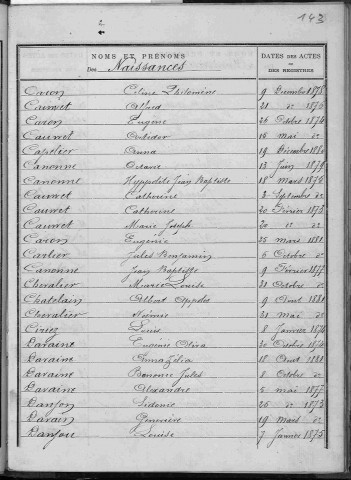 2
143
NOMS ET PRÉNOMS
DATES DES ACTES
Des Naissances
OU DES REGISTRES
Caron Céline Philomène 9 Décembre 1878
Cauvet Alfred 21 dº 1876
Caron Eugène 26 Octobre 1874
Cauvet 16 Mai dº
Capelier Anna 19 Décembre 1880
Canonne Octave 13 Juin 1879
Canonne Hyppolite Jean Baptiste 18 Mars 1876
Cauvet Catherine 3 Septembre dº
Cauvet Catherine 20 Février 1873
Cauvet Marie Joseph 20 dº dº
Caron Eugénie 25 mars 1881
Carlier Jules Benjamin 5 Octobre dº
Canonne Jean Baptiste 9 Février 1877
Chevalier Marie Louise 31 Octobre dº
Chatelain Albert Appolos 9 Aout 1881
Chevalier Noémie 31 Mai dº
Ciriez Louis 8 Janvier 1874
Daraine Eugénie Oliva 30 Octobre 1874
Daraine Anna Zélia 18 Aout 1881
Davaine Benonie Jules 8 Octobre dº
Davaine Alexandre 5 mai 1877
Danjou Sidonie 26 dº 1873
Davain Geneviève 19 Mars dº
Danjou Louise 7 Janvier 1875